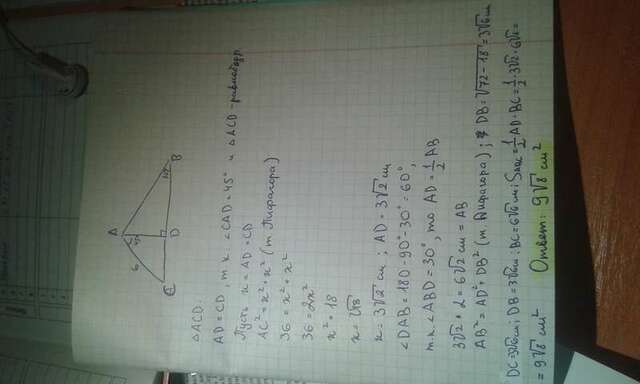 A
6
45°
30°
C
D
B
△ACD:
AD = CD, т.к ∠CAD = 45° и △ACD - равнобедр.
Пусть x = AD = CD
AC² = x² + x² (т. Пифагора)
36 = x² + x²
36 = 2x²
x² = 18
x = √18
x = 3√2 см; AD = 3√2 см
∠DAB = 180 - 90° - 30° = 60°,
т.к ∠ABD = 30°, то AD = 1/2 AB
3√2 · 2 = 6√2 см = AB
AB² = AD² + DB² (т. Пифагора); DB = √72 - 18 = 3√6 см
DC = 3√6 см; DB = 3√6 см; BC = 6√6 см; S = 1/2 AD · BC = 1/2 · 3√2 · 6√6 =
= 9√8 см²
Ответ: 9√8 см²